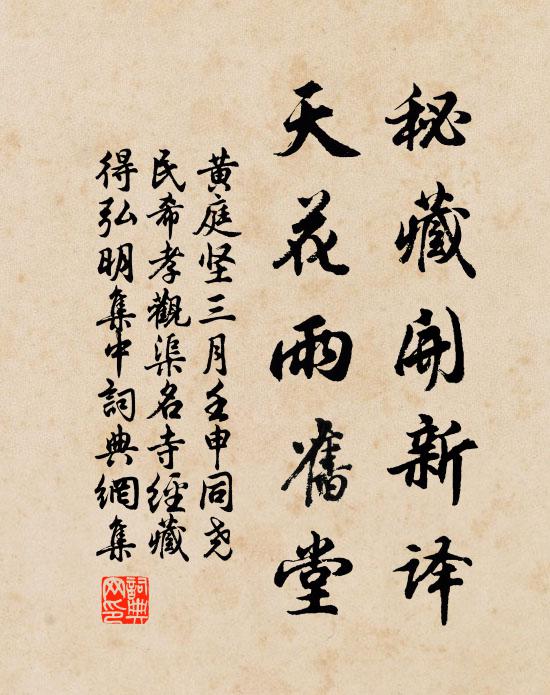 秘藏開新译
天花雨舊堂
黄庭坚三月壬申同尧
民希孝觀渠名寺經藏
得弘明集中詞典網集
詞典網印